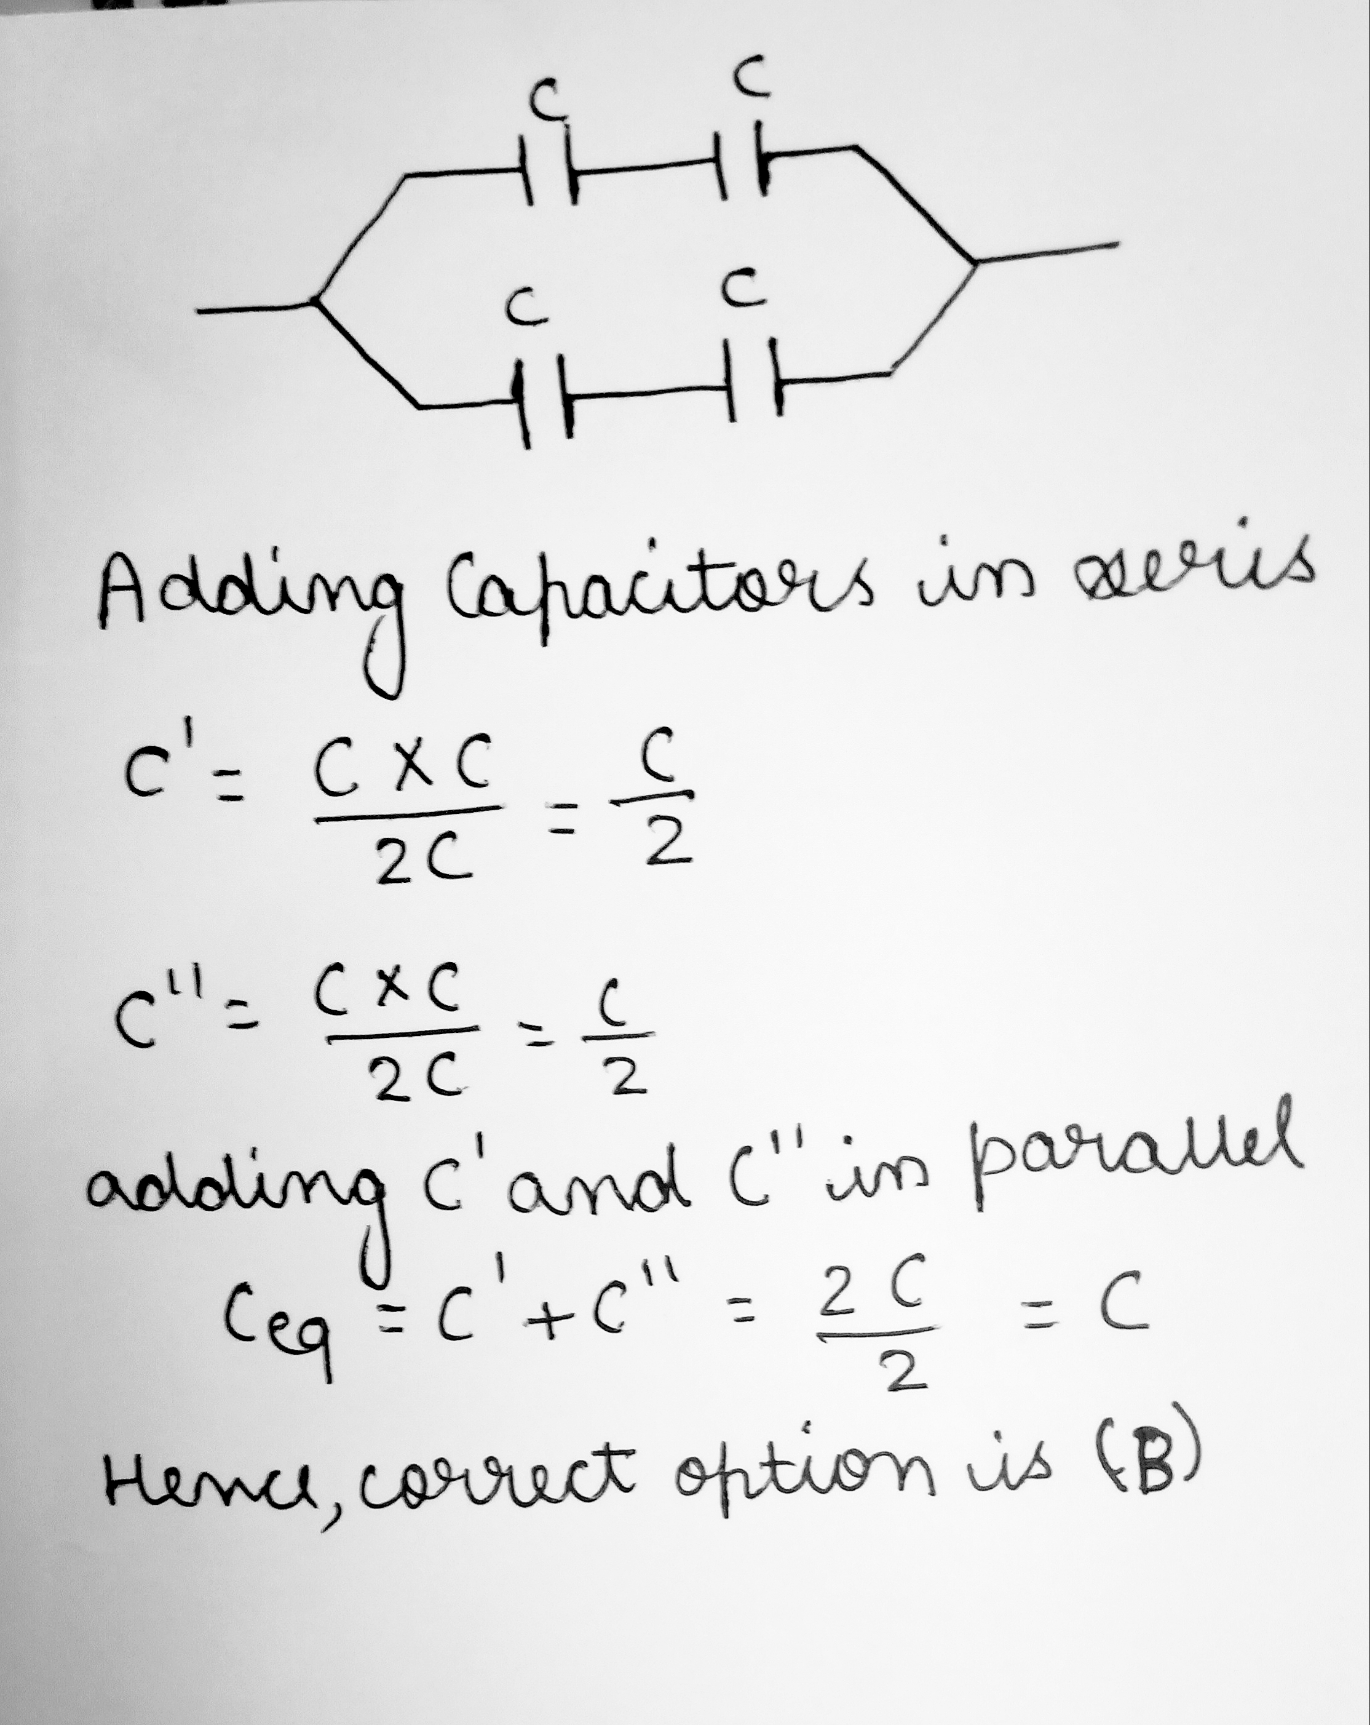 C C
C C
Adding Capacitors in seris
C' = C X C / 2C = C / 2
C'' = C X C / 2C = C / 2
adding C' and C'' in parallel
Ceq = C' + C'' = 2C / 2 = C
Hence, correct option is (B)